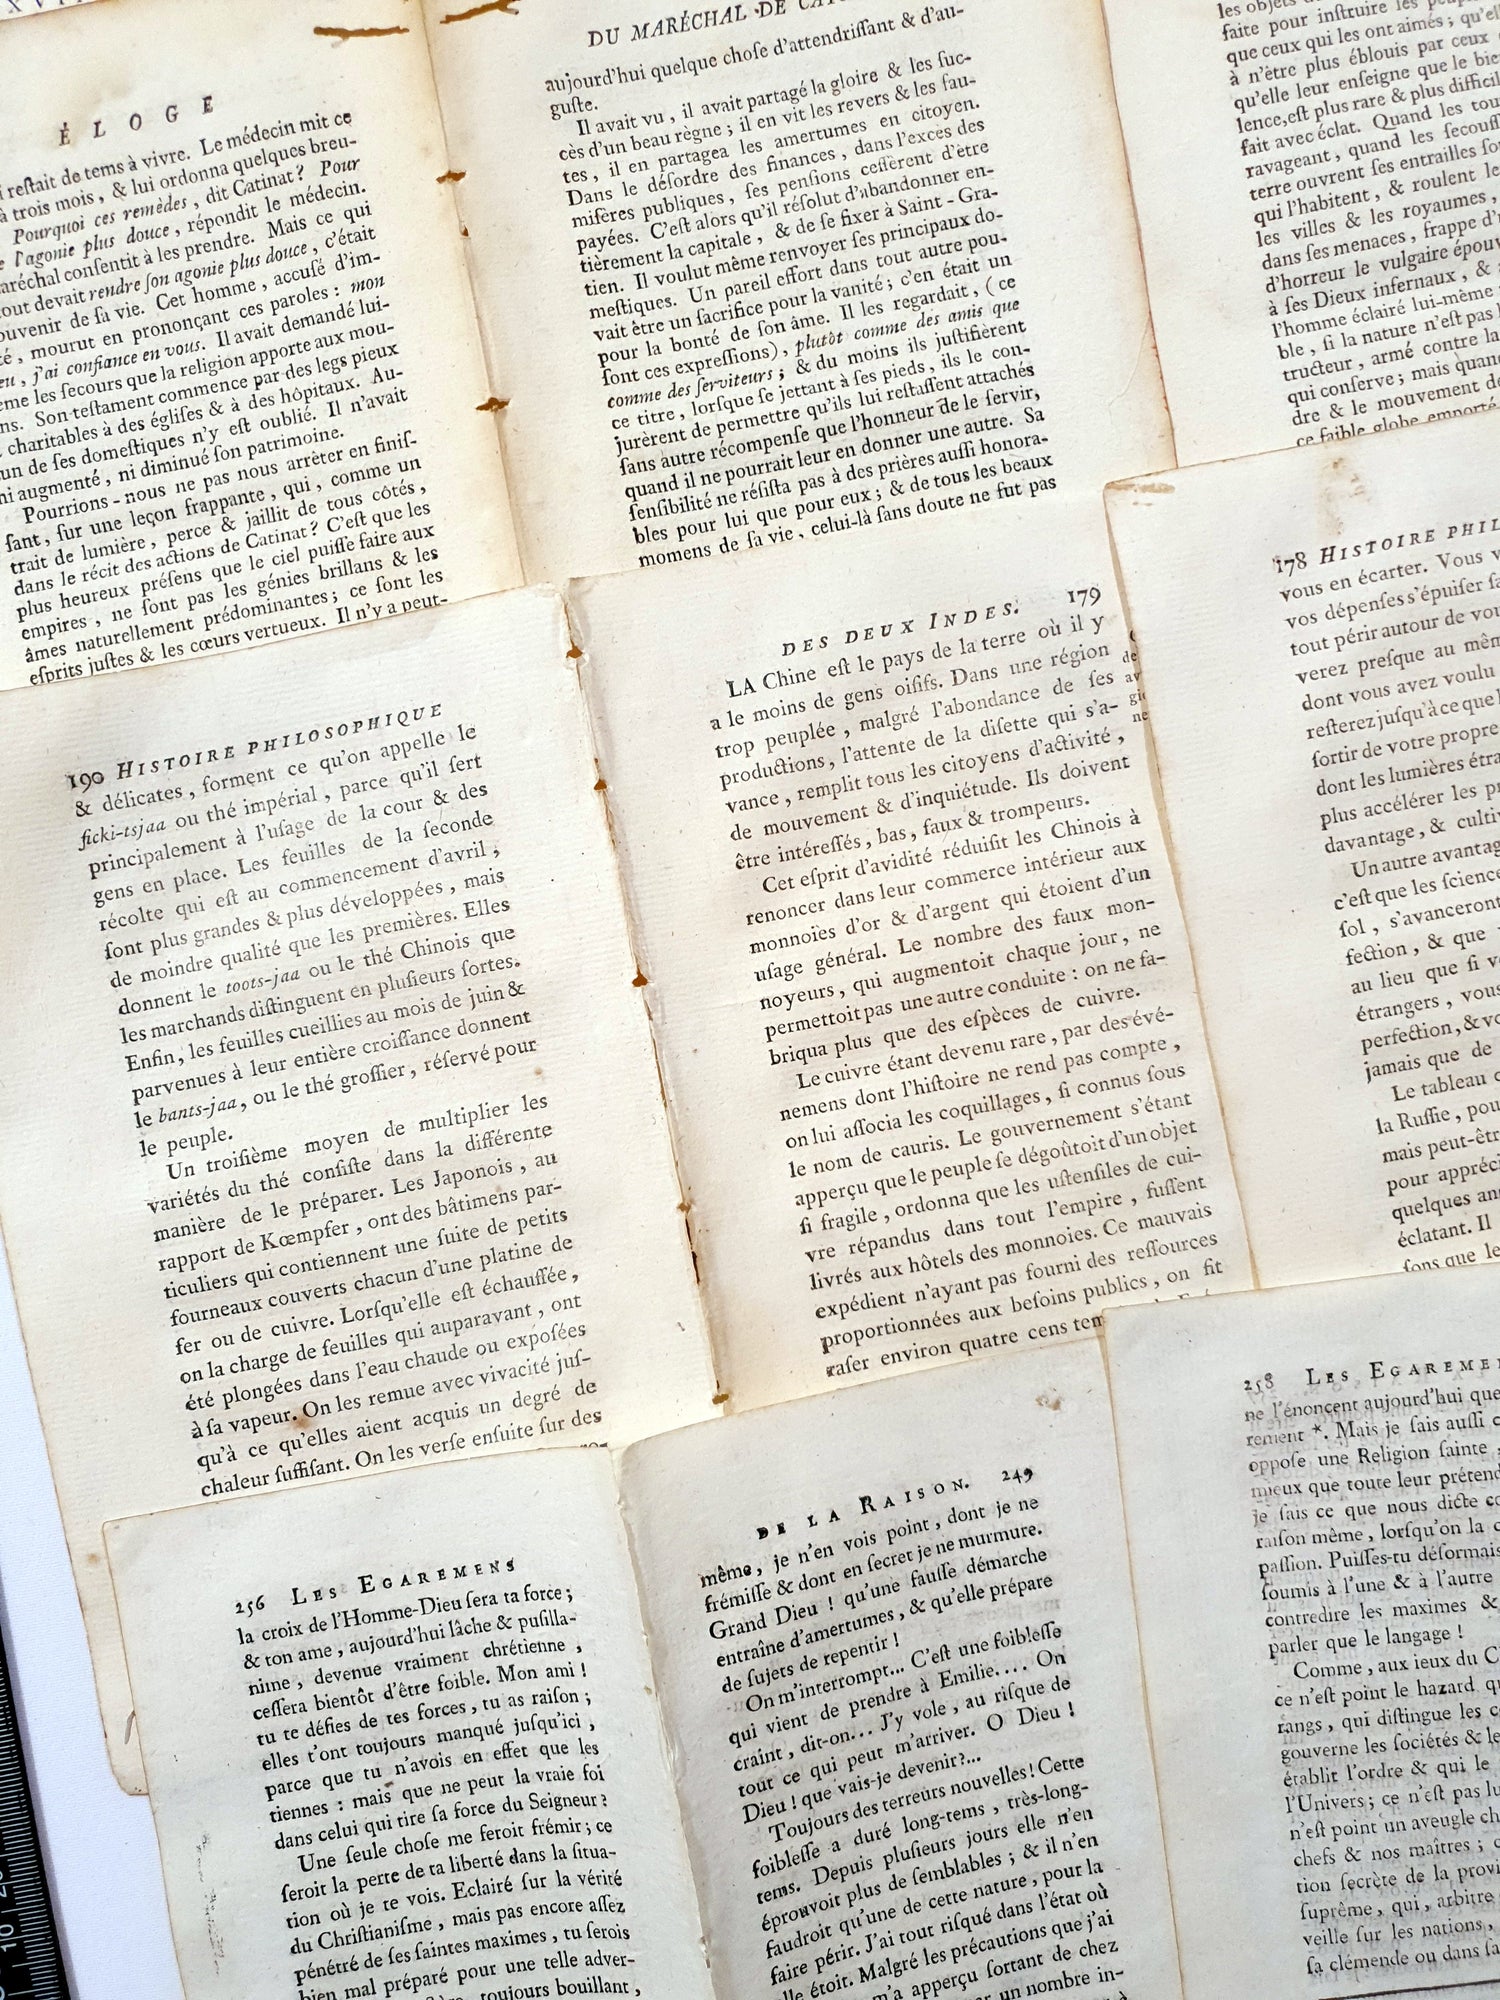 ÉLOGE
restait de tems à vivre. Le médecin mit ce
à trois mois, & lui ordonna quelques breu-
Pourquoi ces remèdes, dit Catinat? Pour
l'agonie plus douce, répondit le médecin.
consentit à les prendre. Mais ce qui
devait rendre ſon agonie plus douce, c'était
de ſa vie. Cet homme, accuſé d'im-
, mourut en prononçant ces paroles : mon
, j'ai confiance en vous. Il avait demandé lui-
les ſecours que la religion apporte aux mou-
Son teſtament commence par des legs pieux
charitables à des égliſes & à des hôpitaux. Au-
un de ſes domeſtiques n'y eſt oublié. Il n'avait
ni augmenté, ni diminué ſon patrimoine.
Pourrions-nous ne pas nous arrêter en finiſ-
ſant, ſur une leçon frappante, qui, comme un
trait de lumière, perce & jaillit de tous côtés,
dans le récit des actions de Catinat? C'eſt que les
plus heureux préſens que le ciel puiſſe faire aux
empires, ne ſont pas les génies brillans & les
âmes naturellement prédominantes; ce ſont les
eſprits juſtes & les cœurs vertueux. Il n'y a peut-
DU MARÉCHAL DE
aujourd'hui quelque choſe d'attendriſſant & d'au-
guſte.
Il avait vu, il avait partagé la gloire & les ſuc-
cès d'un beau règne; il en vit les revers & les fau-
tes, il en partagea les amertumes en citoyen.
Dans le déſordre des finances, dans l'excès des
miſères publiques, ſes penſions ceſſèrent d'être
payées. C'eſt alors qu'il réſolut d'abandonner en-
tièrement la capitale, & de ſe fixer à Saint-Gra-
tien. Il voulut même renvoyer ſes principaux do-
meſtiques. Un pareil effort dans tout autre pou-
vait être un ſacrifice pour la vanité; c'en était un
pour la bonté de ſon âme. Il les regardait, (ce
ſont ces expreſſions), plutôt comme des amis que
comme des ſerviteurs; & du moins ils juſtifièrent
ce titre, lorſque ſe jettant à ſes pieds, ils le con-
jurèrent de permettre qu'ils lui reſtaſſent attachés
ſans autre récompenſe que l'honneur de le ſervir,
quand il ne pourrait leur en donner une autre. Sa
ſenſibilité ne réſiſta pas à des prières auſſi honora-
bles pour lui que pour eux; & de tous les beaux
momens de ſa vie, celui-là ſans doute ne fut pas
les objets
faite pour inſtruire les
que ceux qui les ont aimés; qu'
à n'être plus éblouis par ceux
qu'elle leur enſeigne que le bie
lence, eſt plus rare & plus difficil
fait avec éclat. Quand les tou
ravageant, quand les ſecouſſ
terre ouvrent ſes entrailles ſo
qui l'habitent, & roulent le
les villes & les royaumes,
dans ſes menaces, frappe d'
d'horreur le vulgaire épou
à ſes Dieux infernaux, &
l'homme éclairé lui-même
ble, ſi la nature n'eſt pas
tructeur, armé contre la
qui conſerve; mais quan
dre & le mouvement de
ce faible globe emporté
190 HISTOIRE PHILOSOPHIQUE
& délicates, forment ce qu'on appelle le
ficki-tsjaa ou thé impérial, parce qu'il ſert
principalement à l'uſage de la cour & des
gens en place. Les feuilles de la ſeconde
récolte qui eſt au commencement d'avril,
ſont plus grandes & plus développées, mais
de moindre qualité que les premières. Elles
donnent le toots-jaa ou le thé Chinois que
les marchands diſtinguent en pluſieurs ſortes.
Enfin, les feuilles cueillies au mois de juin &
parvenues à leur entière croiſſance donnent
le bants-jaa, ou le thé groſſier, réſervé pour
le peuple.
Un troiſième moyen de multiplier les
variétés du thé conſiſte dans la différente
manière de le préparer. Les Japonois, au
rapport de Kœmpfer, ont des bâtimens par-
ticuliers qui contiennent une ſuite de petits
fourneaux couverts chacun d'une platine de
fer ou de cuivre. Lorſqu'elle eſt échauffée,
on la charge de feuilles qui auparavant, ont
été plongées dans l'eau chaude ou expoſées
à ſa vapeur. On les remue avec vivacité juſ-
qu'à ce qu'elles aient acquis un degré de
chaleur ſuffiſant. On les verſe enſuite ſur des
DES DEUX INDES. 179
LA Chine eſt le pays de la terre où il y
a le moins de gens oiſifs. Dans une région
trop peuplée, malgré l'abondance de ſes
productions, l'attente de la diſette qui s'a-
vance, remplit tous les citoyens d'activité,
de mouvement & d'inquiétude. Ils doivent
être intéreſſés, bas, faux & trompeurs.
Cet eſprit d'avidité réduiſit les Chinois à
renoncer dans leur commerce intérieur aux
monnoies d'or & d'argent qui étoient d'un
uſage général. Le nombre des faux mon-
noyeurs, qui augmentoit chaque jour, ne
permettoit pas une autre conduite : on ne fa-
briqua plus que des eſpèces de cuivre.
Le cuivre étant devenu rare, par des évé-
nemens dont l'hiſtoire ne rend pas compte,
on lui aſſocia les coquillages, ſi connus ſous
le nom de cauris. Le gouvernement s'étant
apperçu que le peuple ſe dégoûtoit d'un objet
ſi fragile, ordonna que les uſtenſiles de cui-
vre répandus dans tout l'empire, fuſſent
livrés aux hôtels des monnoies. Ce mauvais
expédient n'ayant pas fourni des reſſources
proportionnées aux beſoins publics, on fit
raſer environ quatre cens tem
178 HISTOIRE PHIL
vous en écarter. Vous v
vos dépenſes s'épuiſer ſa
tout périr autour de vou
verez preſque au mêm
dont vous avez voulu
reſterez juſqu'à ce que
ſortir de votre propre
dont les lumières étra
plus accélérer les pr
davantage, & cultiv
Un autre avantag
c'eſt que les ſcience
ſol, s'avanceront
fection, & que
au lieu que ſi v
étrangers, vous
perfection, & vo
jamais que de
Le tableau
la Ruſſie, pou
mais peut-êtr
pour appréci
quelques an
éclatant. Il
ſons que le
256 LES EGAREMENS
la croix de l'Homme-Dieu ſera ta force;
& ton ame, aujourd'hui lâche & puſilla-
nime, devenue vraiment chrétienne,
ceſſera bientôt d'être foible. Mon ami!
tu te défies de tes forces, tu as raiſon;
elles t'ont toujours manqué juſqu'ici,
parce que tu n'avois en effet que les
tiennes : mais que ne peut la vraie foi
dans celui qui tire ſa force du Seigneur?
Une ſeule choſe me feroit frémir; ce
ſeroit la perte de ta liberté dans la ſitua-
tion où je te vois. Eclairé ſur la vérité
du Chriſtianiſme, mais pas encore aſſez
pénétré de ſes ſaintes maximes, tu ſerois
bien mal préparé pour une telle adver-
toujours bouillant,
DE LA RAISON. 249
même, je n'en vois point, dont je ne
frémiſſe & dont en ſecret je ne murmure.
Grand Dieu! qu'une fauſſe démarche
entraîne d'amertumes, & qu'elle prépare
de ſujets de repentir!
On m'interrompt... C'eſt une foibleſſe
qui vient de prendre à Emilie.... On
craint, dit-on... J'y vole, au riſque de
tout ce qui peut m'arriver. O Dieu!
Dieu! que vais-je devenir?...
Toujours des terreurs nouvelles! Cette
foibleſſe a duré long-tems, très-long-
tems. Depuis pluſieurs jours elle n'en
éprouvoit plus de ſemblables; & il n'en
faudroit qu'une de cette nature, pour la
faire périr. J'ai tout riſqué dans l'état où
elle étoit. Malgré les précautions que j'ai
m'a apperçu ſortant de chez
un nombre in-
258 LES EGAREMEN
ne l'énoncent aujourd'hui que
rement *. Mais je ſais auſſi
oppoſe une Religion ſainte,
mieux que toute leur prétend
je ſais ce que nous dicte
raiſon même, lorſqu'on la
paſſion. Puiſſes-tu déſormais
ſoumis à l'une & à l'autre
contredire les maximes &
parler que le langage!
Comme, aux ieux du C
ce n'eſt point le hazard qu
rangs, qui diſtingue les
gouverne les ſociétés & le
établit l'ordre & qui le
l'Univers; ce n'eſt pas lu
n'eſt point un aveugle ch
chefs & nos maîtres;
tion ſecrète de la provi
ſuprême, qui, arbitre
veille ſur les nations,
ſa clémence ou dans ſa